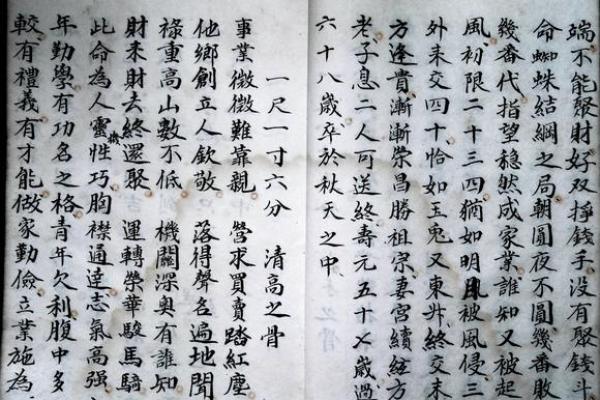 端不能聚財好双掙錢手没有聚錢斗
命蜘蛛結綱之局朝圓夜不圓幾番敗
幾番代指望穏然成家業誰知又被起
風初限二十三四猶如明月被風侵三
外末交四十恰如玉兎又東升終交末
方逢貴漸漸榮昌勝祖宗妻宮續絃方
老子息二人可送終壽元五十乂歲過
六十八歲卒於秋天之中
一尺一寸六分 清高之骨
事業微微難靠親 營求買賣踏紅塵
他鄉創立人欽敬 落得聲名遍地聞
祿重高山數不低 機關深奥有誰知
財來財去終還聚 運轉榮華駿馬騎
此命為人靈機性巧胸襟通達志氣高强
年勤學有功名之格青年欠利腹中多
較有禮義有才能做家勤儉立業施為